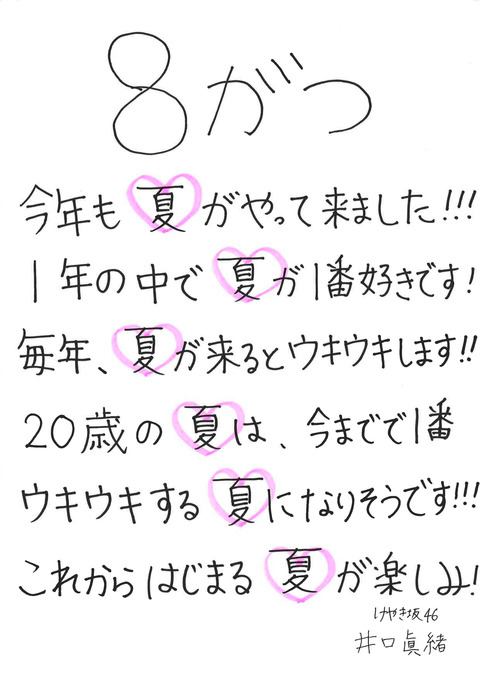 8がつ
今年も夏がやって来ました!!!
1年の中で夏が1番好きです!
毎年、夏が来るとウキウキします!!
20歳の夏は、今までで1番
ウキウキする夏になりそうです!!!
これからはじまる夏が楽しみ!
けやき坂46
井口眞緒